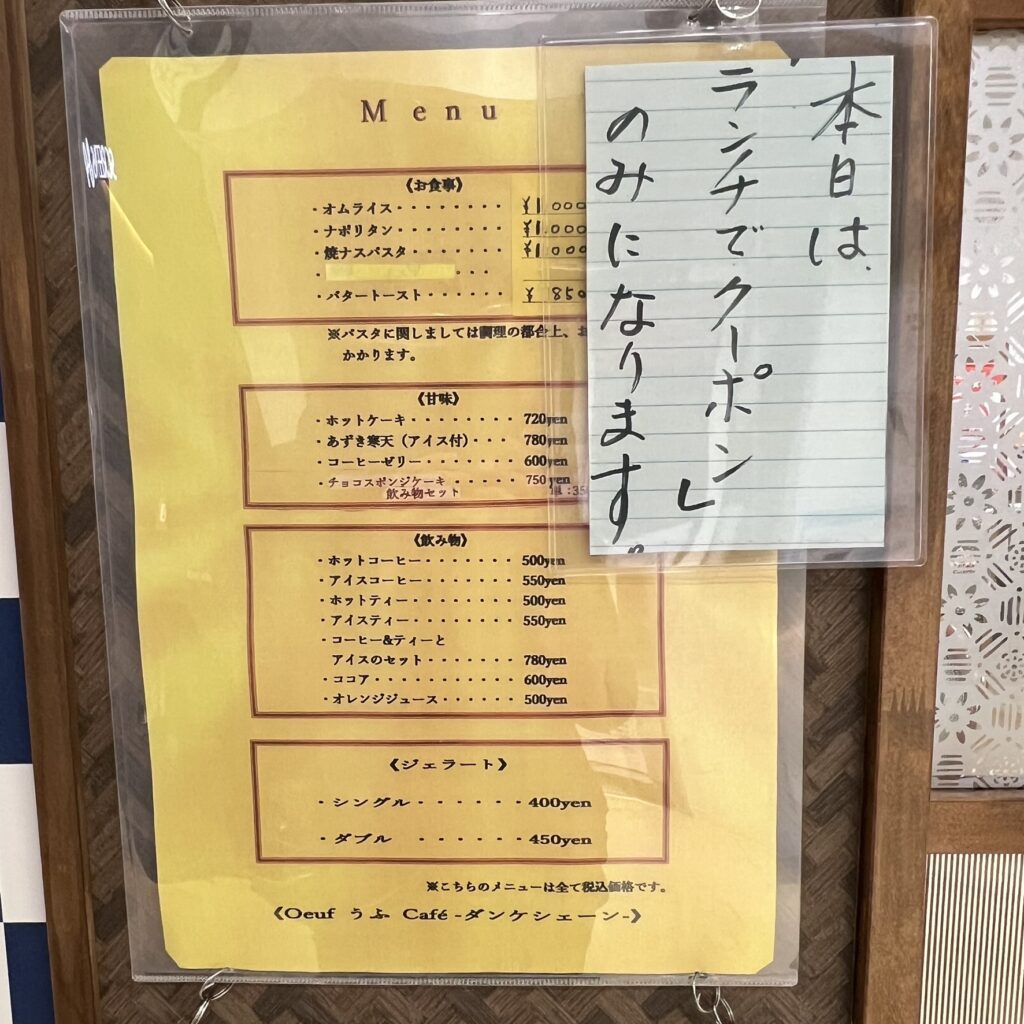 Menu
《お食事》
・オムライス・・・・・・・・ ¥1,000
・ナポリタン・・・・・・・・ ¥1,000
・焼ナスパスタ ・・・・・・・ ¥1,000
・ ・・・
・バタートースト・・・・・・ ¥ 850
※パスタに関しましては調理の都合上、お
かかります。
《甘味》
・ホットケーキ・・・・・・・ 720yen
・あずき寒天（アイス付）・・・ 780yen
・コーヒーゼリー・・・・・・ 600yen
・チョコスポンジケーキ ・・・・ 750yen
飲み物セット :350
《飲み物》
・ホットコーヒー・・・・・・・ 500yen
・アイスコーヒー・・・・・・・ 550yen
・ホットティー・・・・・・・・ 500yen
・アイスティー・・・・・・・・ 550yen
・コーヒー&ティーと
アイスのセット・・・・・・・ 780yen
・ココア・・・・・・・・・・・ 600yen
・オレンジジュース・・・・・・ 500yen
《ジェラート》
・シングル・・・・・・・400yen
・ダブル ・・・・・・450yen
※こちらのメニューは全て税込価格です。
《Oeuf うふ Café -ダンケシェーン-》
本日は、
「ランチでクーポン」
のみになります。